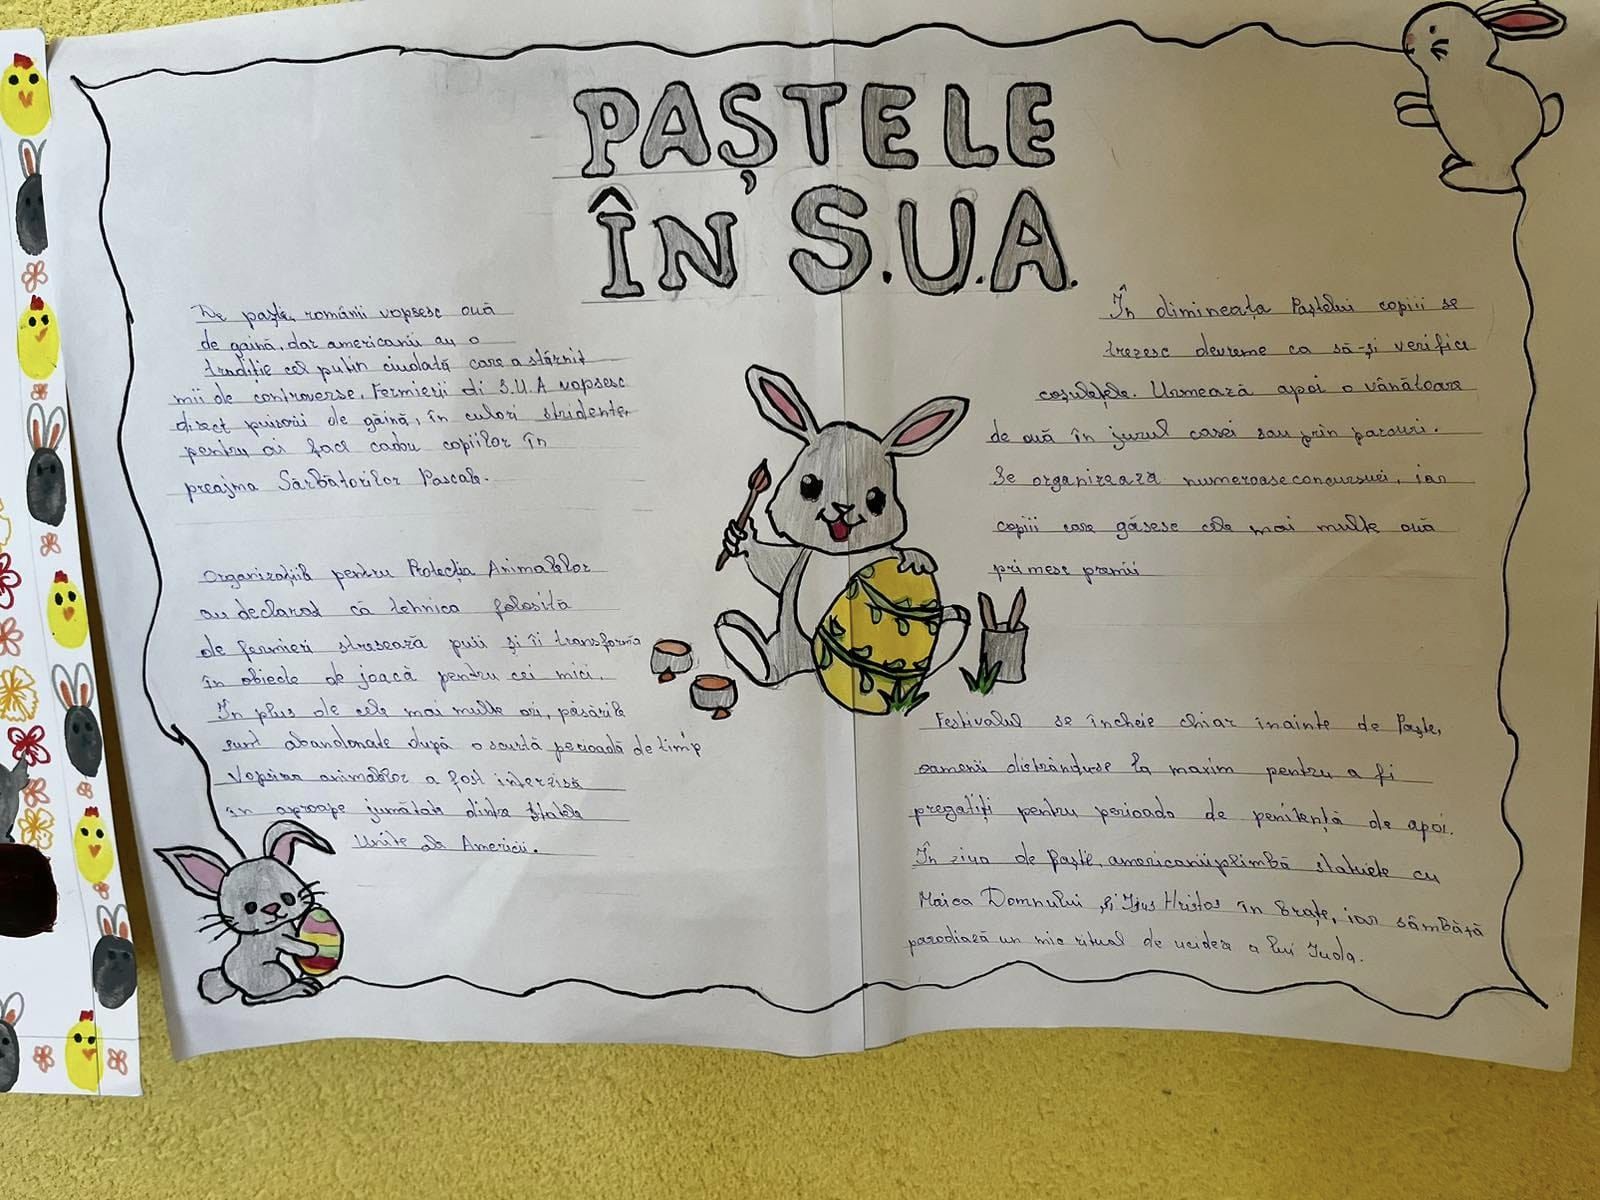 PAȘTELE
ÎN S.U.A.
De paște, românii vopsesc ouă
de gaină, dar americanii au o
tradiție cel puțin ciudată care a stârnit
mii de controverse. Fermierii di S.U.A vopsesc
direct puisorii de găină, în culori stridente,
pentru ai face cadou copiilor în
preajma Sărbătorilor Pascale.
Organizațiile pentru Protecția Animalelor
au declarat că tehnica folosită
de fermieri stresează puii și îi transformă
în obiecte de joacă pentru cei mici.
În plus de cele mai multe ori, păsările
sunt abandonate după o scurtă perioadă de timp
Vopsirea animalelor a fost interzisă
în aproape jumătate dintre Statele
Unite ale Americii.
În dimineața Paștelui copiii se
trezesc devreme ca să-și verifice
coșulețele. Urmează apoi o vânătoare
de ouă în jurul casei sau prin parcuri.
Se organizează numeroase concursuri, iar
copiii care găsesc cele mai multe ouă
primesc premii
Festivalul se încheie chiar înainte de Paște,
oamenii distrându-se la maxim pentru a fi
pregatiți pentru perioada de penitență de apoi.
În ziua de Paște, americanii plimbă statuiele cu
Maica Domnului și Isus Hristos în brațe, iar sâmbătă
parodiază un mic ritual de ucidere a lui Iuda.